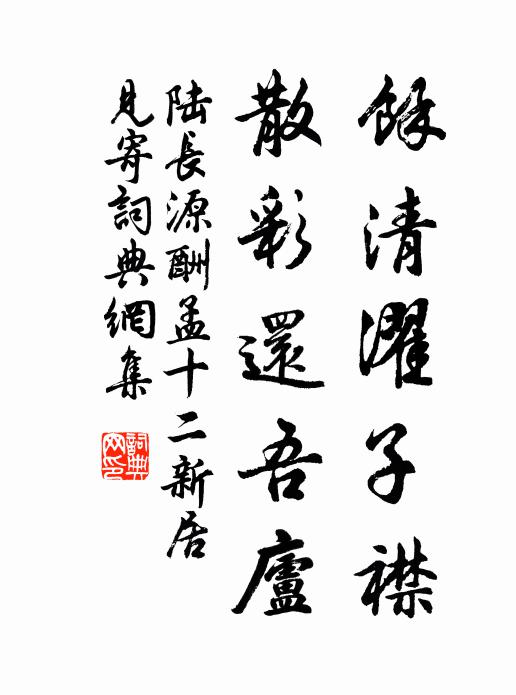 餘清濯子襟
散彩還吾廬
陸長源酬孟十二新居
見寄詞典網集
詞典網印